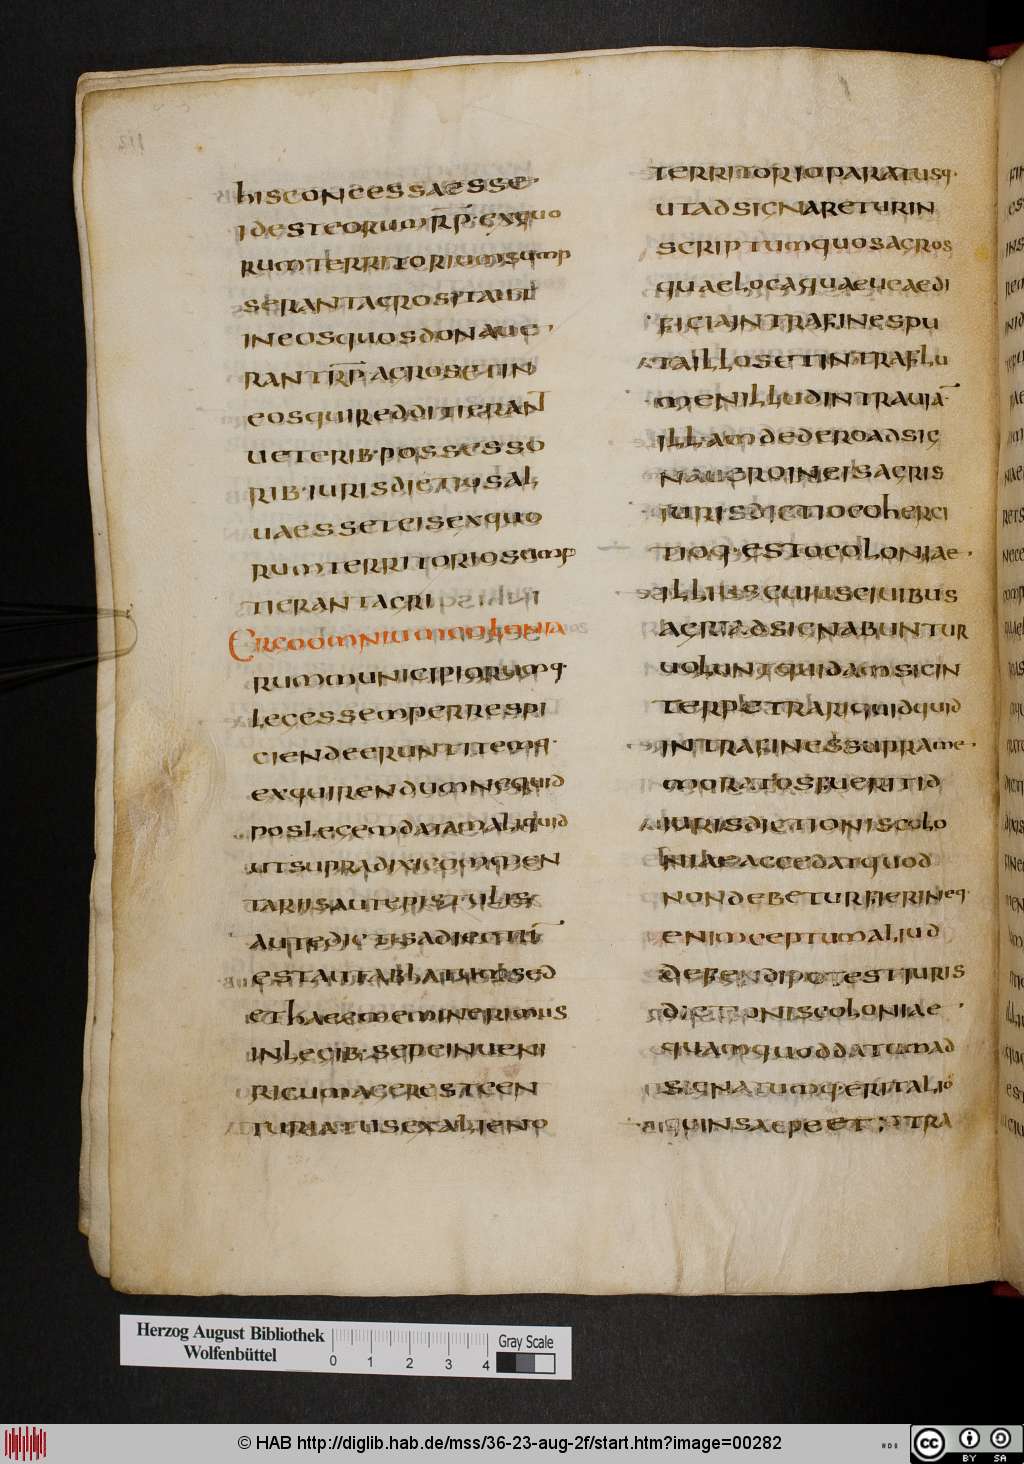 hisconcessaesse
idesteorumrp·exquo
rumterritoriumsump
serantagrositautt
ineosquosdonaue
rantrp̄agrosetin
eosquiredditierant
ueterib·possesso
rib·iurisdictiosal
uaessseteisexquo
rumterritoriosump
tierantagri
Ergoomniumcolonia
rummunicipiorumq·
legessemperrespi
ciendeeruntitemq·
exquirendumnequid
poslegemdatamaliquid
utsupradixicommen
tariisautepistulis
autedictisadiectum
estautablatumsed
ethaecmeminerimus
inlegib·sepeinueni
ricumageresticen
turiatusexalieno
territorioparatusq·
utadsignareturin
scriptumquosagros
quaelocaquaeueaedi
ficiaintrafinespu
taillosetintraflu
menilludintrauia
illamdederoadsig
naueroineisagris
iurisdictiocoherci
tioq·estocoloniae·
illiuscuiusciuibus
agriadsignabuntur
uoluntquidamsicin
terpetrariquidquid
intrafinessuprame·
moratosfueritid
iurisdictioniscolo
niaeaccedatquod
nondebeturfierineq·
enimceptumaliud
debendipotestiuris
dictioniscoloniae·
quamquoddatumad
signatumq·eritalio
quinsaepeetintra
Herzog August Bibliothek
Wolfenbüttel
0 1 2 3 4
Gray Scale
© HAB http://diglib.hab.de/mss/36-23-aug-2f/start.htm?image=00282
cc BY SA